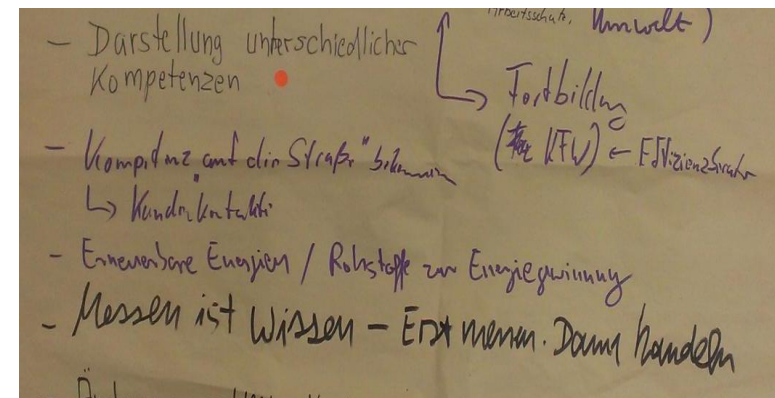 Arbeitsschutz, Umwelt)
- Darstellung unterschiedlicher
Kompetenzen
Fortbildung
(KFW) ← Effizienzberater
- Kompetenz auf die Straße" bekommen
↳ Kunden
- Erneuerbare Energien / Rohstoffe zur Energiegewinnung
- Messen ist Wissen - Erst messen. Dann handeln